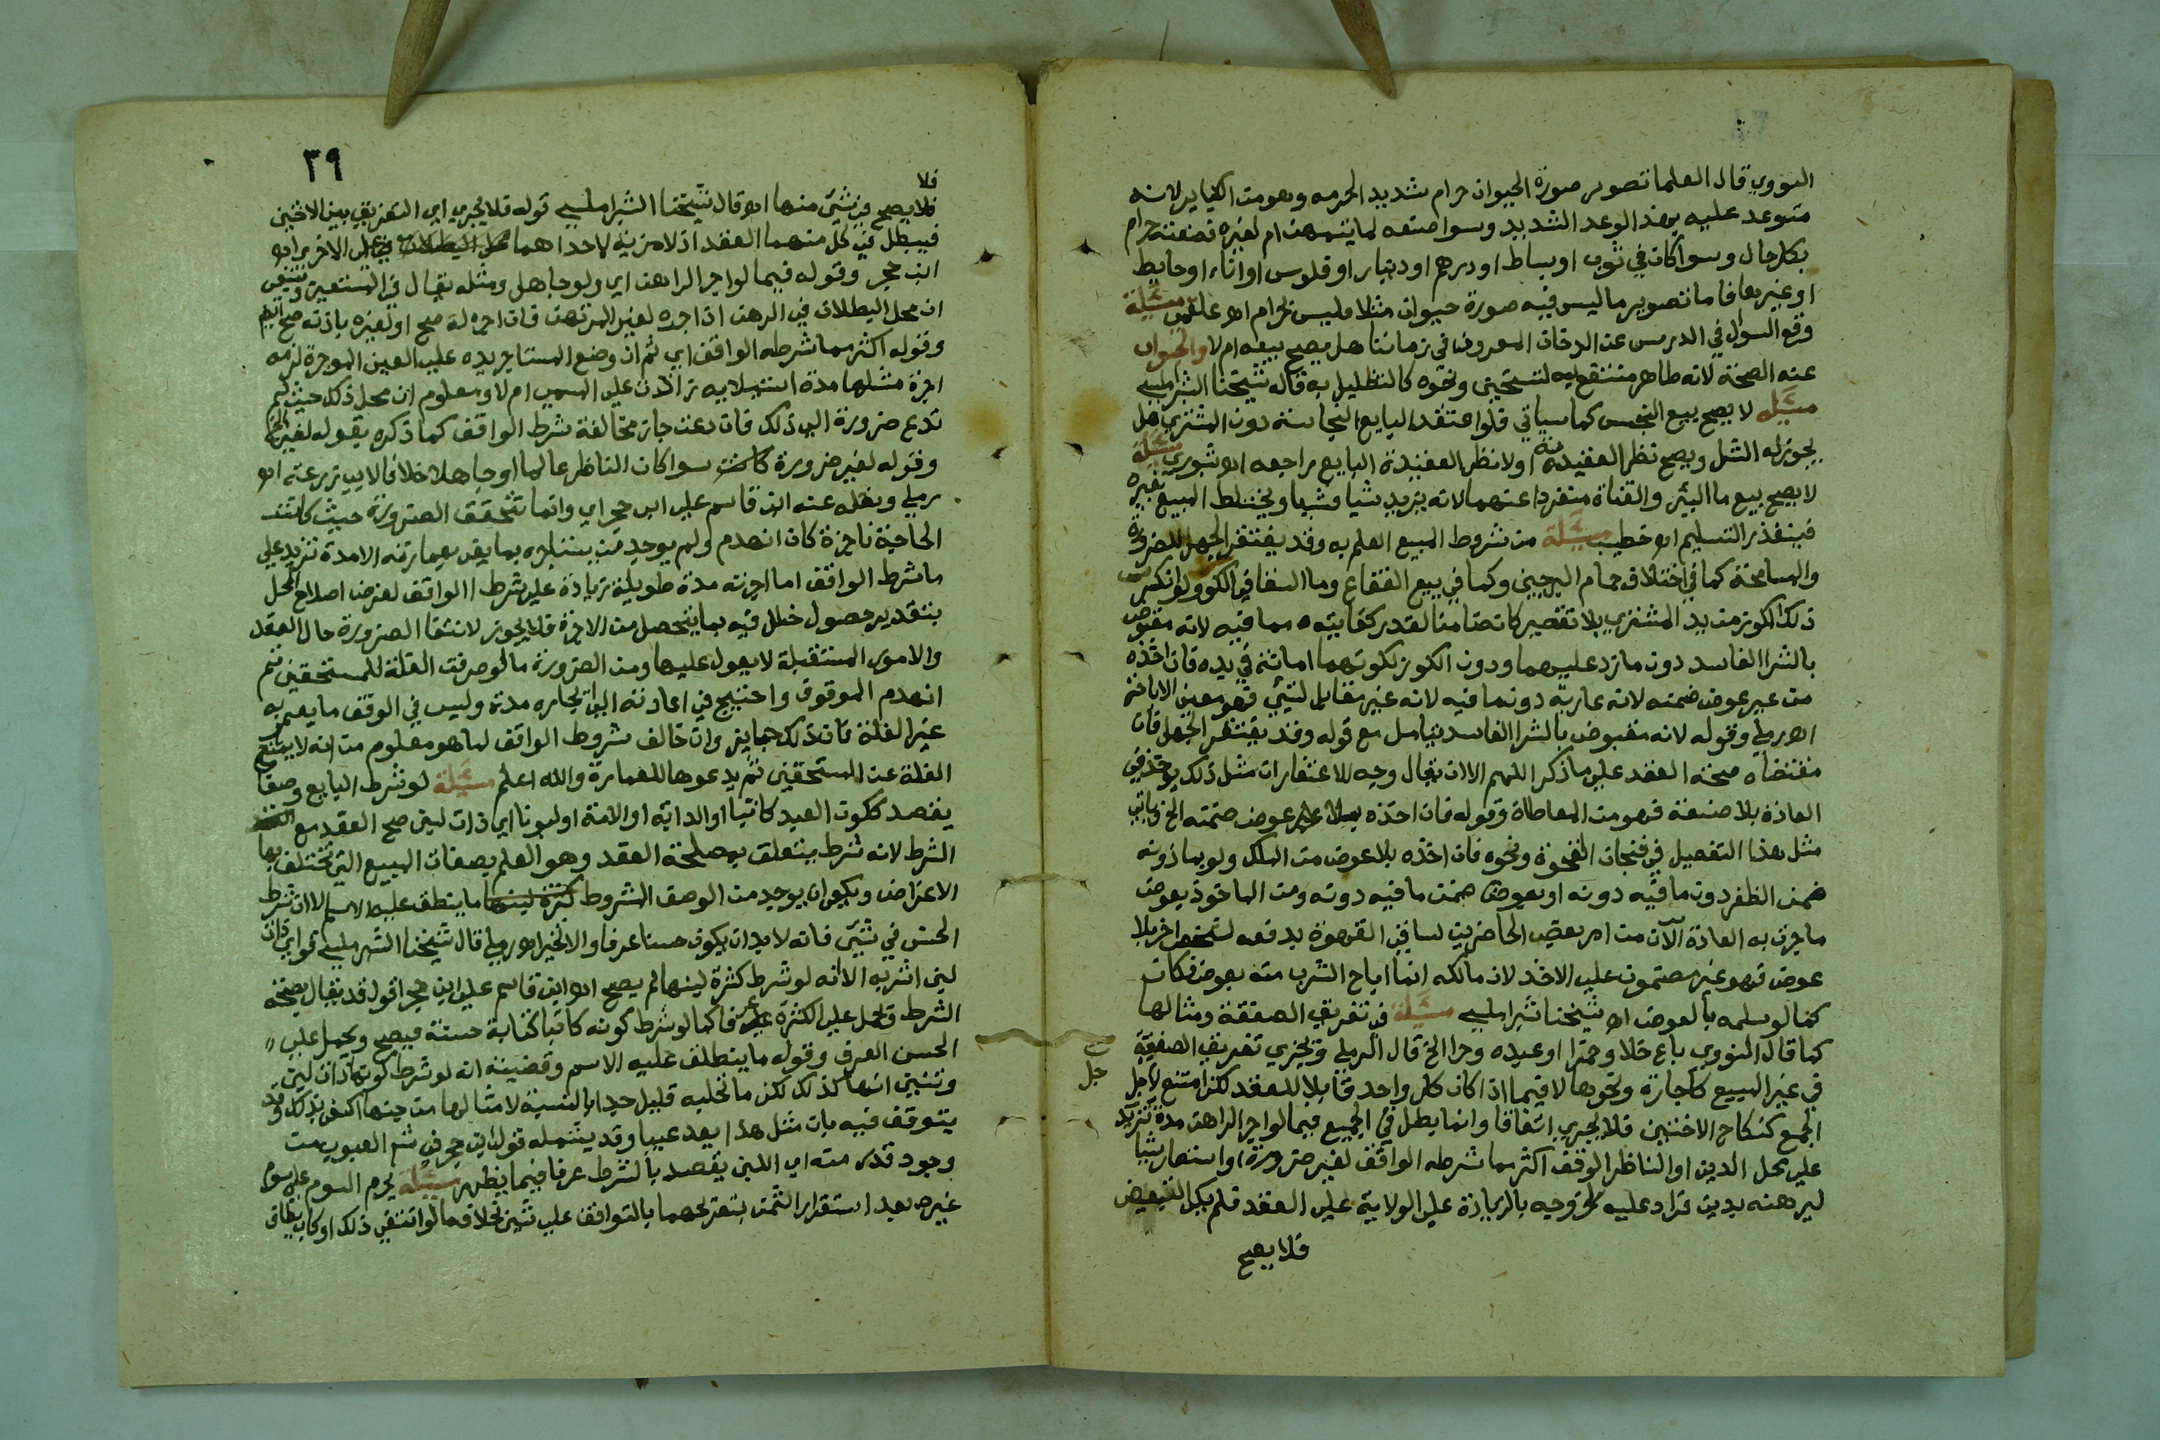 النووي قال العلما تصوير صورة الحيوان حرام شديد الحرمه وهو من الكباير لانه
متوعد عليه بهذا الوعد الشديد وسوا صنعه لما يمتهن ام لغيره فصنعته حرام
بكل حال وسوا كان في ثوب او بساط او درهم او دينار او فلوس او اناء او حايط
او غيرها فاما تصوير ما ليس فيه صورة حيوان مثلا فليس بحرام اه مسئلة
وقع السؤل في الدرس عن الدخان المعروف في زماننا هل يصح بيعه ام لا والجواب
عنه الصحة لانه طاهر منتفع به لتسخين ونحوه كالتظليل به قاله شيخنا الشبراملسي
مسئله لا يصح بيع النجس كما سياتي فلو اعتقد البايع النجاسته دون المشتري هل
يجوز له الشرا ويصح نظرا لعقيدته او لا نظرا لعقيدة البايع راجعه اه شوبري مسئلة
لا يصح بيع ما البئر والقناة منفردا عنهما لانه يزيد شيا فشيا ويختلط المبيع بغيره
فيتعذر التسليم اه خطيب مسئلة من شروط المبيع العلم به وقد يغتفر الجهل للضرورة
والمسامحة كما في اختلاط حمام البرجين وكما في بيع الفقاع وما السقا في الكوز ولو انكسر
ذلك الكوز من يد المشتري بلا تقصير كان ضامنا لقدر كفايته مما فيه لانه مقبوض
بالشرا الفاسد دون ما زاد عليهما ودون الكوز لكونهما امانة في يده فان اخذه
من غير عوض ضمنه لانه عارية دون ما فيه لانه غير مقابل لشئي فهو معنى الاباحة
اه رملي وقوله لانه مقبوض بالشرا الفاسد يتامل مع قوله وقد يغتفر الجهل فان
مقتضاه صحة العقد علي ما ذكر اللهم الا ان يقال وجه الاغتفار ان مثل ذلك يوخذ في
العادة بلا صيغة فهو من المعاطاة وقوله فان اخذه بلا عوض ضمنه الخ وياتي
مثل هذا التفصيل في فنجان القهوة ونحوه فان اخذه بلا عوض من المالك ولو بماذونه
ضمن الظرف دون ما فيه دونه او بعوض ضمن ما فيه دونه ومن الماخوذ بعوض
ما جرت به العادة الآن من امر بعض الحاضرين لساقي القهوة بدفعه لشخص اخر بلا
عوض فهو غير مضمون علي الاخذ لان مالكه انما اباح الشرب منه بعوض فكان
كما لو سلمه بالعوض اه شيخنا شبراملسي مسئلة في تفريق الصفقة ومثالها
كما قال النووي باع خلا وخمرا او عبده وحرا الخ قال الرملي ويجري تفريق الصفقة
في غير البيع كاجارة ونحوها لا فيما اذا كان كل واحد قابلا للعقد لكن امتنع لاجل
الجمع كنكاح الاختين فلا يجري اتفاقا وانما بطل في الجميع فيما لو اجر الراهن مدة تزيد
علي محل الدين او الناظر الوقف اكثر مما شرطه الواقف لغير ضرورة او استعار شيا
ليرهنه بدين فزاد عليه لخروجه بالزيادة علي الولاية علي العقد فلم يكن التبعيض
فلا يصح
٣٩
فلا
فلا يصح في شئ منها اه قال شيخنا الشبراملسي قوله فلا يجري اي التفريق بين الاختين
فيبطل في كل منهما العقد اذ لا مزية لاحداهما علي الاخري اه
ابن حجر وقوله فيما لو اجر الراهن اي ولو جاهل ومثله يقال في المستعير
ان محل البطلان في الرهن اذا اجره لغير المرتهن فان اجره له صح او لغيره باذنه صح ايضا
وقوله اكثر مما شرطه الواقف اي ثم ان وضع المستاجر يده علي العين الموجرة لزمه
اجرة مثلها مدة استيلايه زادت علي المسمي ام لا ومعلوم ان محل ذلك حيث لم
تدع ضرورة الي ذلك فان دعت جاز مخالفة شرط الواقف كما ذكره بقوله لغير الخ
وقوله لغير ضرورة سوا كان الناظر عالما او جاهلا خلافا اه
رملي ونقله عنه ابن قاسم علي ابن حجر اي وانما تتحقق الضرورة حيث كانت
الحاجة ناجزة كان انهدم ولم يوجد من يستاجره بما يفي بعمارته الا مدة تزيد علي
ما شرط الواقف اما اجرته مدة طويلة زيادة علي شرط الواقف لغرض اصلاح المحل
بتقدير حصول خلل فيه بما يتحصل من الاجرة فلا يجوز لانتفا الضرورة حال العقد
والامور المستقبلة لا يعول عليها ومن الضرورة ما لو صرفت الغلة للمستحقين ثم
انهدم الموقوف واحتيج في اعادته الي ايجاره مدة وليس في الوقف ما يعمر به
غير الغلة فان ذلك جايز وان خالف شروط الواقف لما هو معلوم من انه لا يمنع
الغلة عن المستحقين ثم يدعوها للعمارة والله اعلم مسئلة لو شرط البايع وصفا
يقصد ككون العبد كاتبا او الدابة او الامة او لبونا اي ذات لبن صح العقد مع
الشرط لانه شرط يتعلق بمصلحة العقد وهو العلم بصفات المبيع التي تختلف بها
الاغراض ويكفي ان يوجد من الوصف المشروط ما ينطلق عليه الاسم الا ان شرط
الحسن في شئ فانه لا بد ان يكون حسنا عرفا والا تخير اه رملي قال شيخنا الشبراملسي قوله اي ذات
لبن اشربه الا انه لو شرط كثرة لبنها لم يصح اه ابن قاسم علي ابن حجر اقول قد يقال بصحة
الشرط ويحمل علي الكثرة عرفا كما لو شرط كونه كاتبا كتابة حسنة فيصح ويحمل علي
الحسن العرفي وقوله ما ينطلق عليه الاسم وقضيته انه لو شرط كونها ذات لبن
وتبين انها كذلك لكن ما تحلبه قليل جدا بالنسبة لامثالها من جنسها اكتفي بذلك وقد
يتوقف فيه بان مثل هذا يعد عيبا وقد يشمله قول ابن حجر في ثم العيوب من
وجود قدر منه اي اللبن يقصد بالشرط عرفا فيما يظهر مسئله يحرم السوم علي سوم
غيره بعد استقرار الثمن بتصريحهما بالتوافق علي شئ بخلاف ما لو انتفي ذلك او كان يطاف